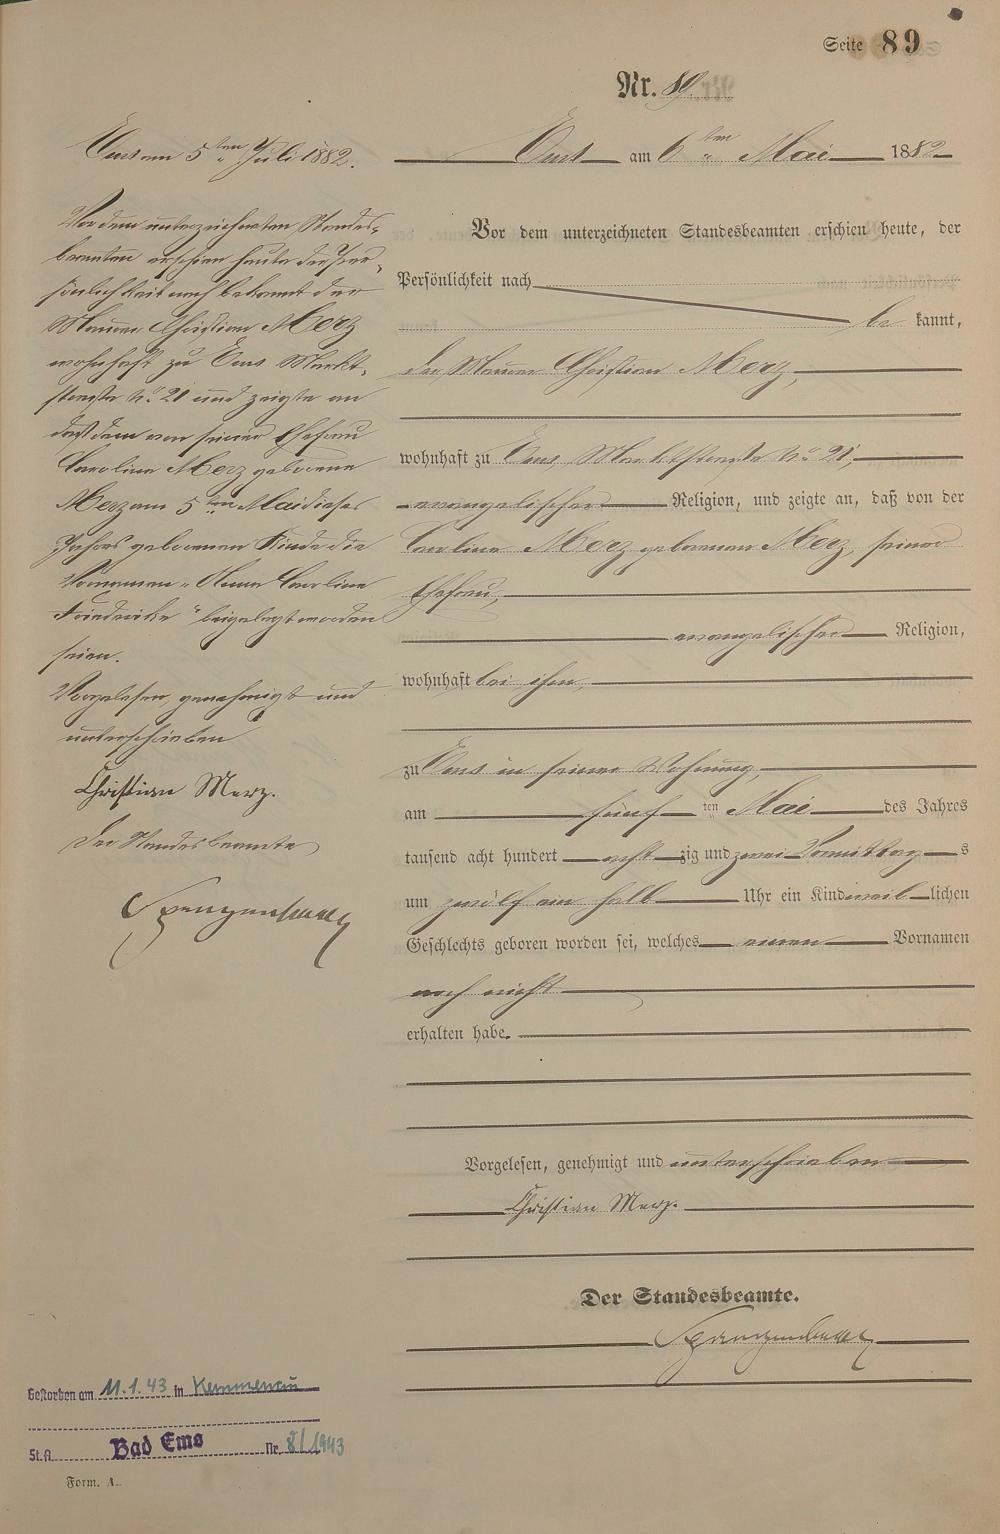 Seite 89
Nr. 89.
Ems am 6ten Mai 1882
Vor dem unterzeichneten Standesbeamten erschien heute, der
Persönlichkeit nach
be kannt,
der Maurer Christian Merz,
wohnhaft zu Ems, Marktstraße No 21,
evangelischer Religion, und zeigte an, daß von der
Caroline Merz geborenen Merz, seiner
Ehefrau,
evangelischer Religion,
wohnhaft bei ihm,
zu Ems in seiner Wohnung,
am fünf ten Mai des Jahres
tausend acht hundert acht zig und zwei Vormittag s
um zwölf ein halb Uhr ein Kind weib lichen
Geschlechts geboren worden sei, welches einen Vornamen
noch nicht
erhalten habe.
Vorgelesen, genehmigt und unterschrieben
Christian Merz.
Der Standesbeamte.
Ems am 5ten Juli 1882.
Vor dem unterzeichneten Standes-
beamten erschien heute der Per-
sönlichkeit nach bekannt der
Maurer Christian Merz
wohnhaft zu Ems Markt-
straße No 21 und zeigte an
daß dem von seiner Ehefrau
Caroline Merz geborene
Merz am 5ten Mai dieses
Jahres geborenen Kinde die
Vornamen „Anna Caroline
Friederike“ beigelegt worden
seien.
Vorgelesen, genehmigt und
unterschrieben
Christian Merz.
Der Standesbeamte
Gestorben am 11.1.43 in Kemmenau
St.A. Bad Ems Nr. 8/1943
Form. A.